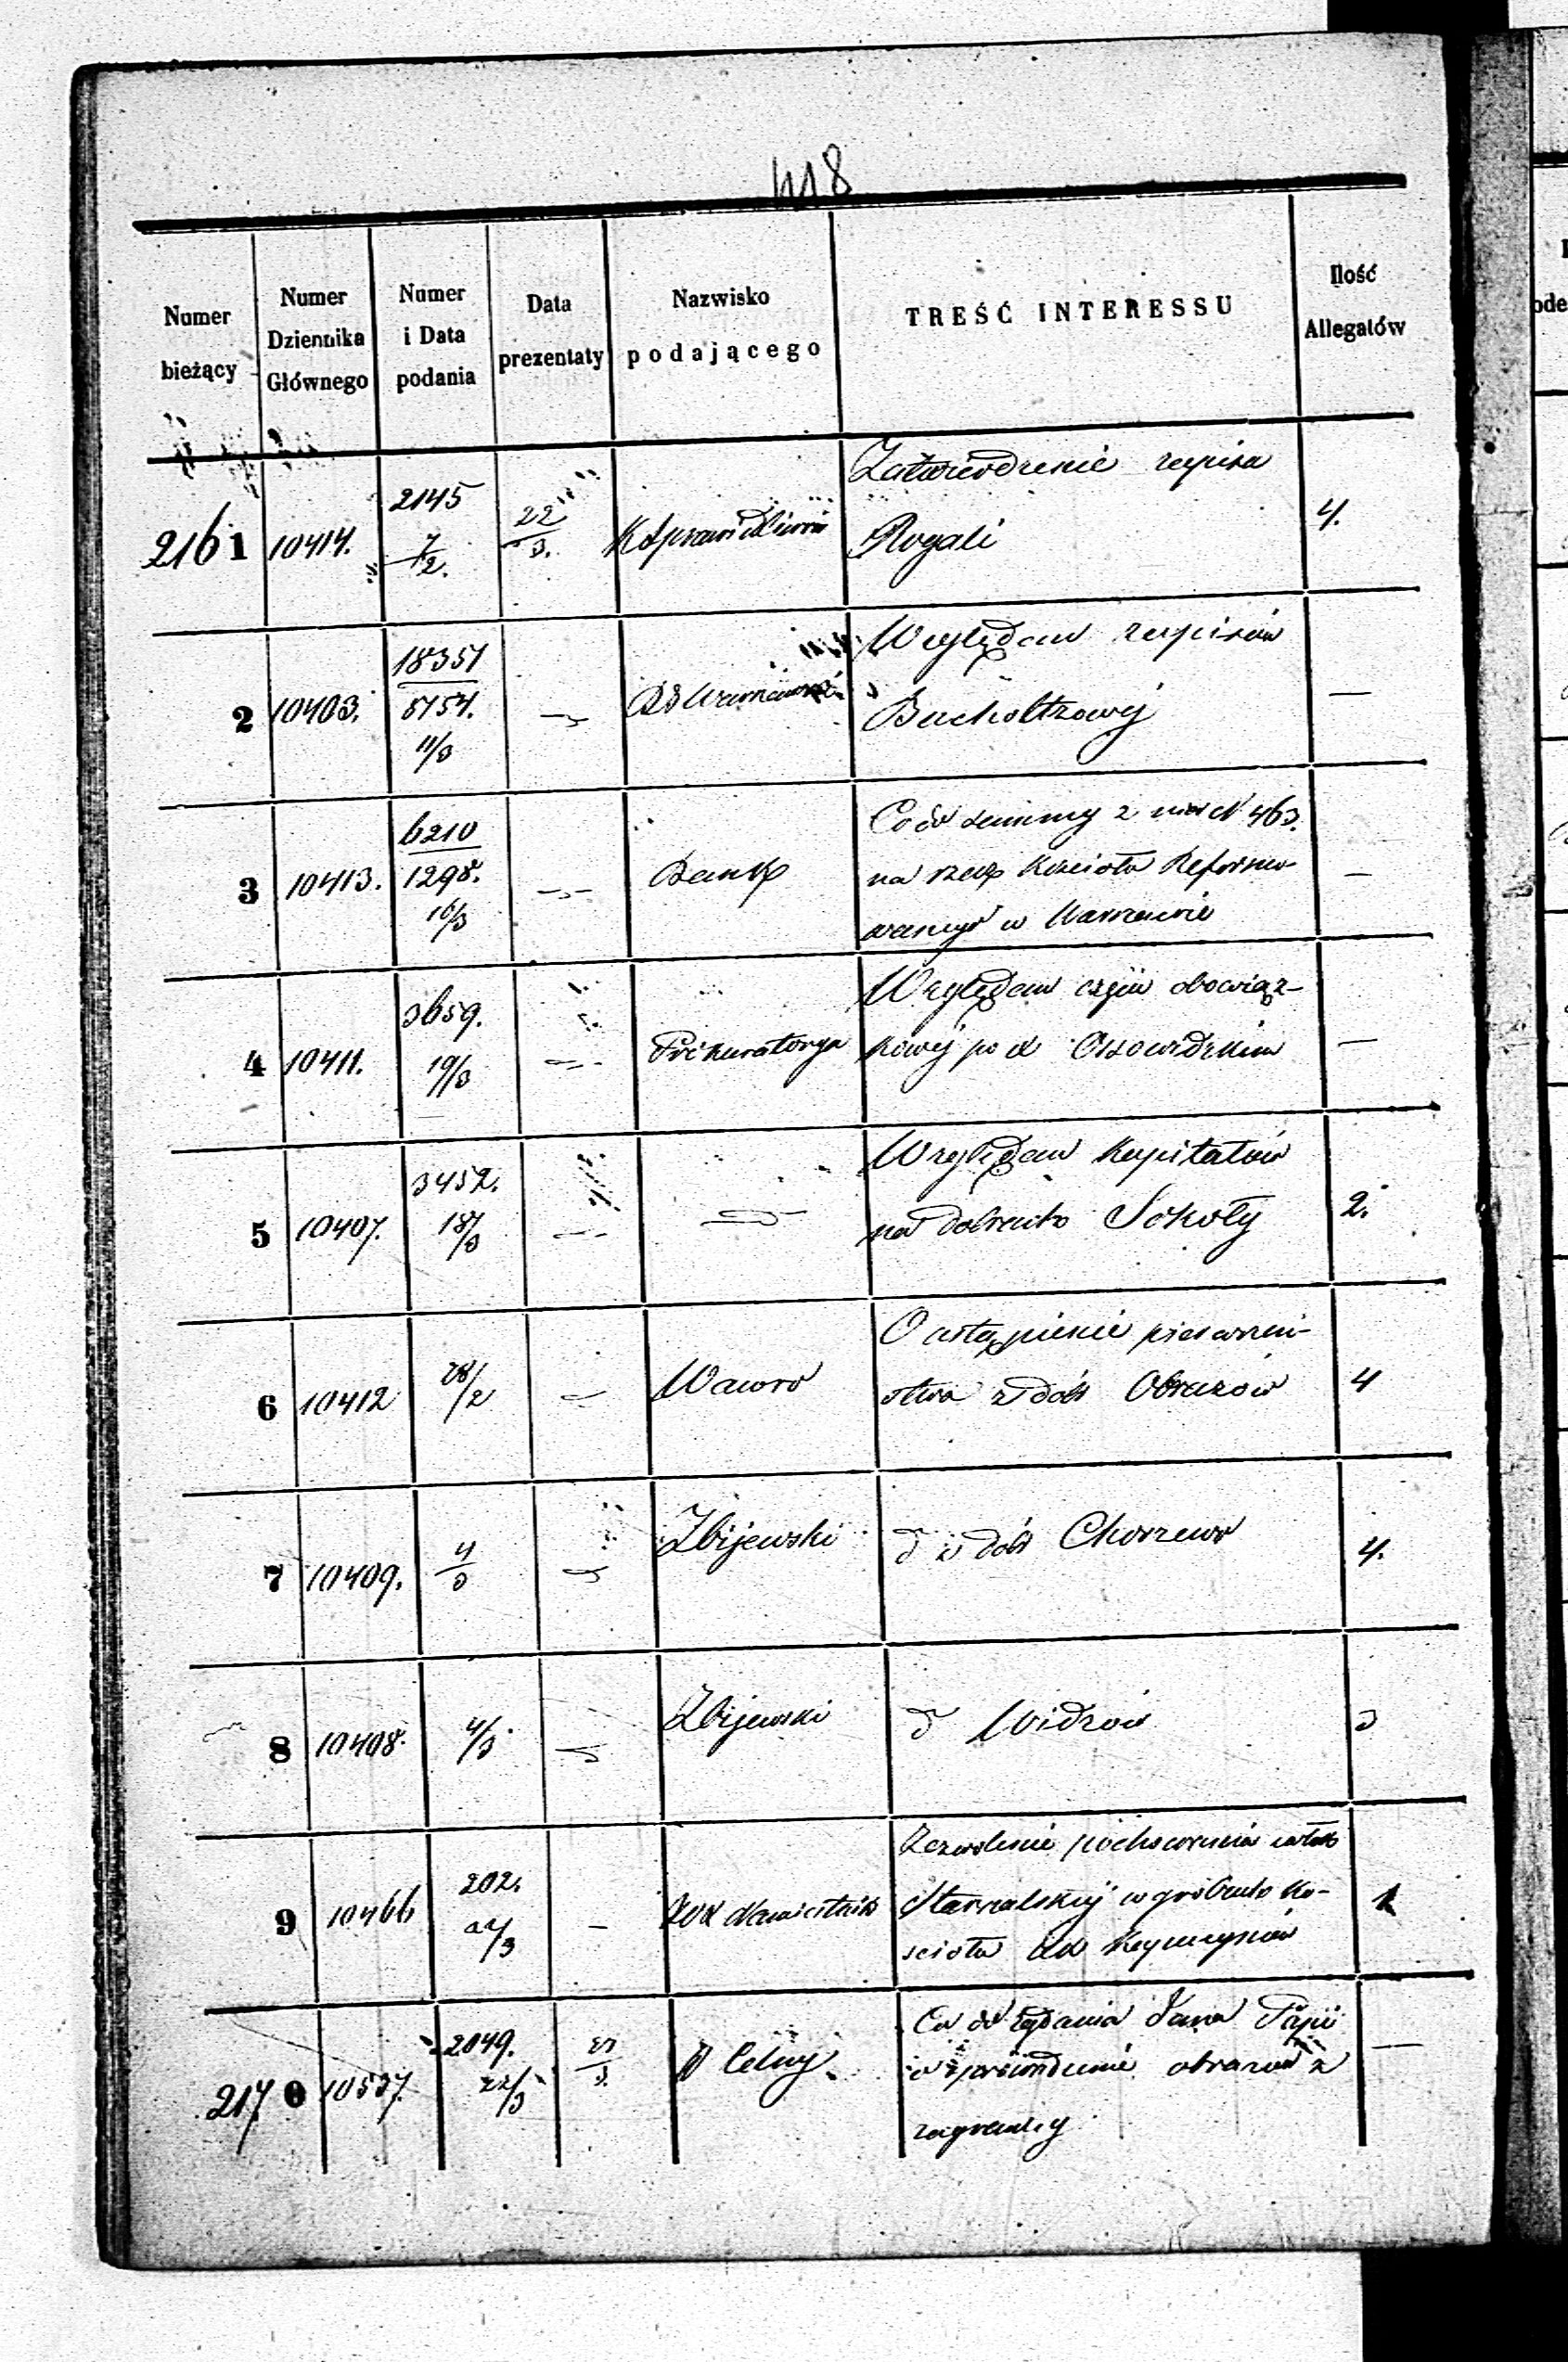 418
Numer bieżący
Numer Dziennika Głównego
Numer i Data podania
Data prezentaty
Nazwisko podającego
TREŚĆ INTERESSU
Ilość Allegatów
2161 10414. 2145 7/2. 22/3. K Sprawiedliwości Zatwierdzenie zapisu
Rogali 4.
2 10403. 18351/5754. 11/3 Względem zapisów
Bucholtzowej —
3 10413. 6210/1298. 16/3 Bank Co do summy z nier N 463.
na rzecz Kościoła Reformo-
wanego w Warszawie —
4 10411. 3659. 19/3 Prokuratorya Względem czyn obowiąz-
kowej po Ossowidzkim —
5 10407. 3452. 18/3 Względem Kapitałów
na dobrach Sokoły 2.
6 10412 28/2 Wawro O ustąpienie pierwszeń-
stwa z dóbr Obrazów 4
7 10409. 4/3 Zbijewski d z dóbr Chorzew 4.
8 10408. 4/3. Zbijewski d Widzów 3
9 10466 202. 22/3 – Zezwolenie pochowania zwłok
w grobach Ko-
ścioła 1
2170 10537. 2049. 22/3 23/3. D Celny Co do żądania Jana
o sprowadzenie obrazów z
zagranicy —